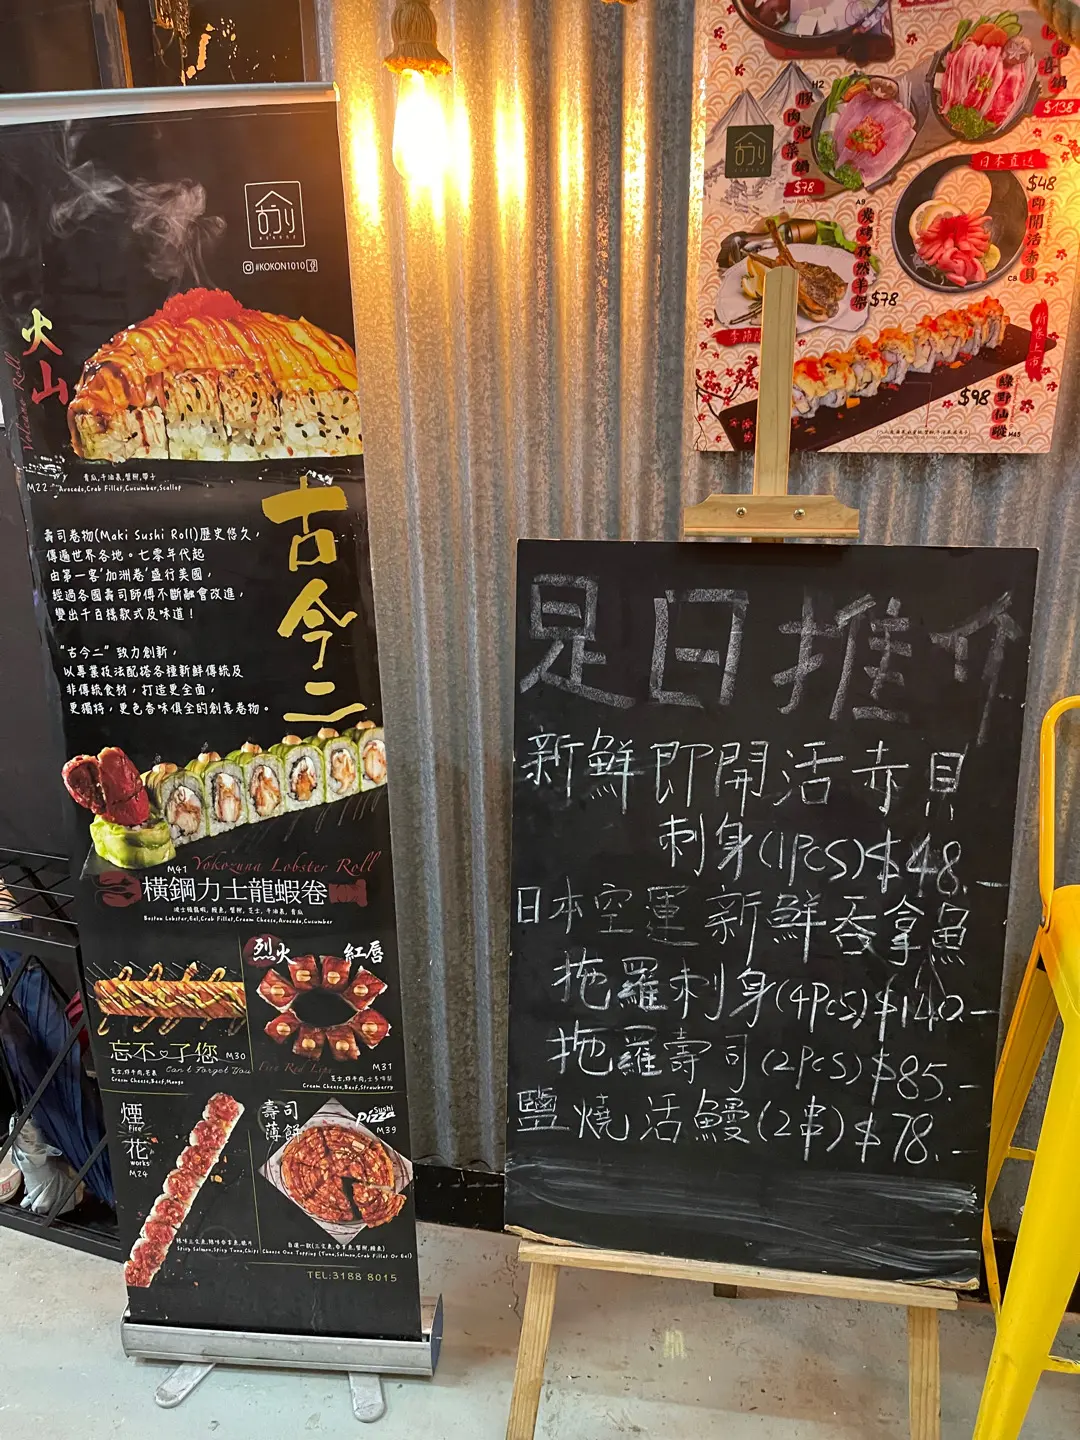 #KOKON1010
火山
Volcano Roll
M22
青瓜,牛油果,蟹柳,帶子
Avocado,Crab Fillet,Cucumber,Scallop
古今二
壽司卷物(Maki Sushi Roll)歷史悠久，
傳遍世界各地。七零年代起
由第一客'加洲卷'盛行美國，
經過各國壽司師傅不斷融會改進，
變出千百樣款式及味道！
“古今二”致力創新，
以專業技法配搭各種新鮮傳統及
非傳統食材，打造更全面，
更獨特，更色香味俱全的創意卷物。
M41 Yokozuna Lobster Roll
橫鋼力士龍蝦卷
Boston Lobster,Eel,Crab Fillet,Cream Cheese,Avocado,Cucumber
忘不了您 M30
Can't Forget You
Cream Cheese,Beef,Mango
烈火紅唇
Fire Red Lips
M31
Cream Cheese,Beef,Strawberry
煙花
Fire works
M24
Spicy Salmon,Spicy Tuna,Chips
壽司薄餅
Sushi Pizza
M39
Choose One Topping (Tuna,Salmon,Crab Fillet Or Eel)
TEL:3188 8015
H2
豚肉泡菜鍋
$78
$138
日本直送
$48
即開活赤貝
C8
A9
炭烤孜然羊架
$78
新卷上市
$98
綠野仙蹤
M45
是日推介
新鮮即開活赤貝
刺身(1PCS)$48.-
日本空運新鮮吞拿魚
拖羅刺身(4PCS)$140.-
拖羅壽司(2PCS)$85.-
鹽燒活鰻(2串)$78.-